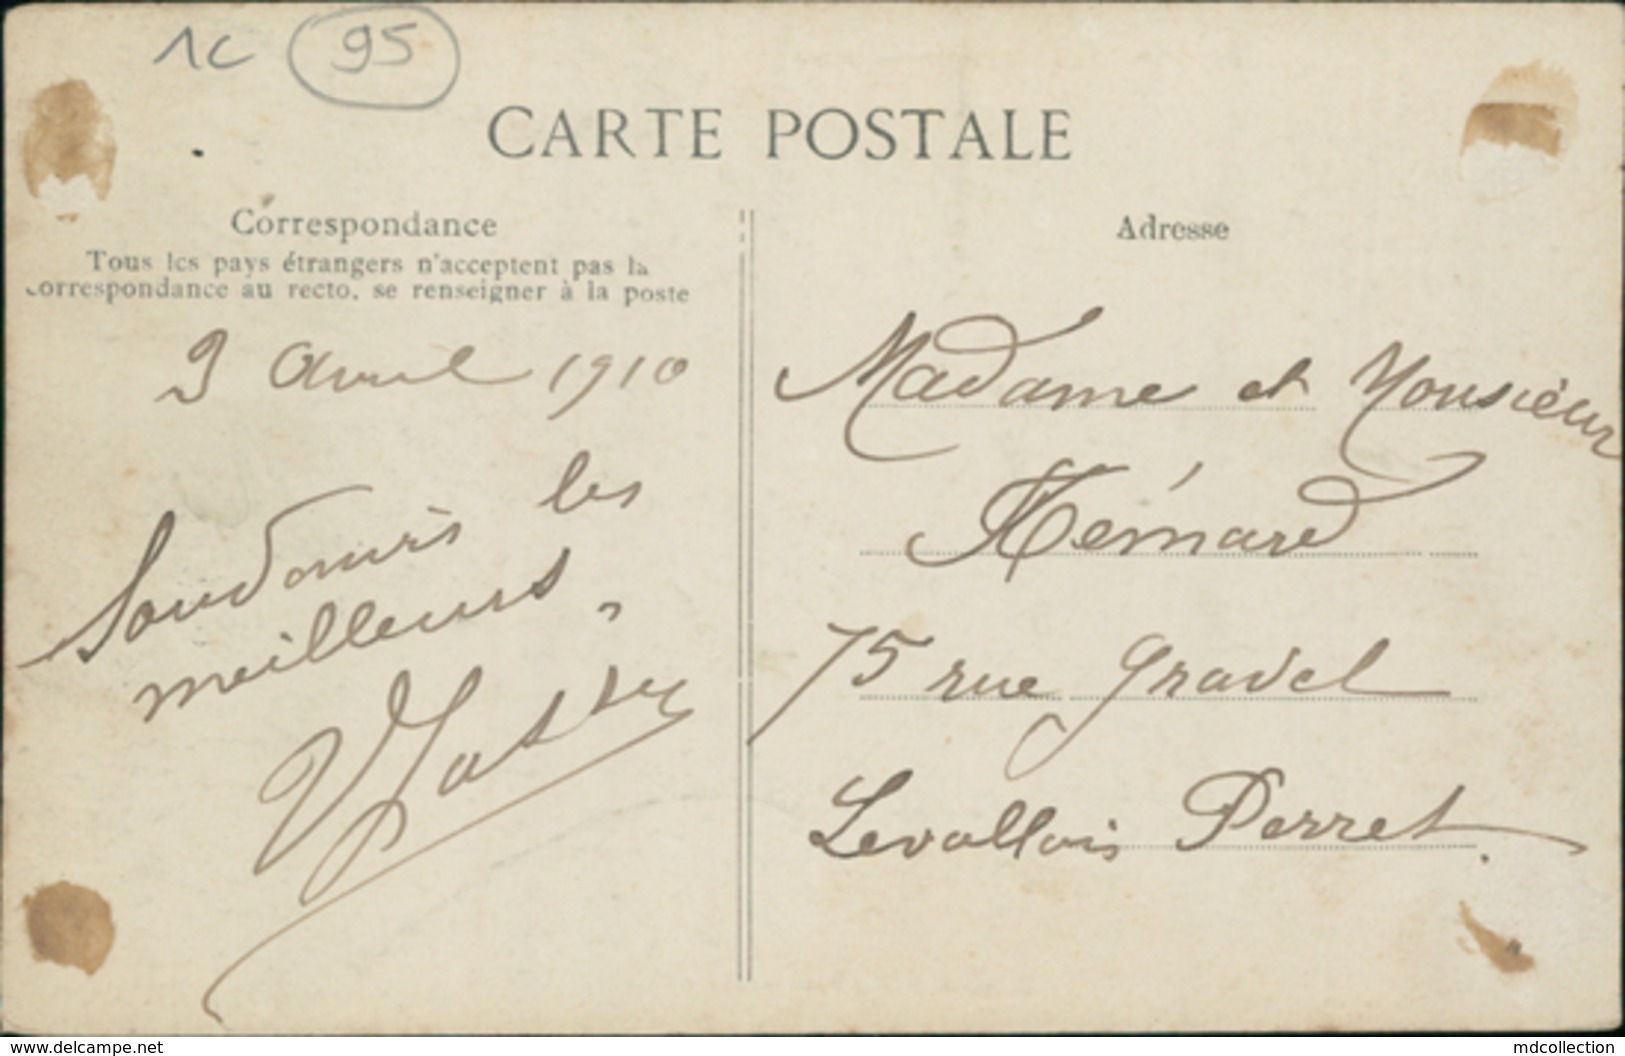 1C 95
CARTE POSTALE
Correspondance
Tous les pays étrangers n'acceptent pas la
correspondance au recto, se renseigner à la poste
3 Avril 1910
les
meilleurs
Adresse
Madame et Monsieur
75 rue Gravel
Levallois Perret.
www.delcampe.net
mdcollection